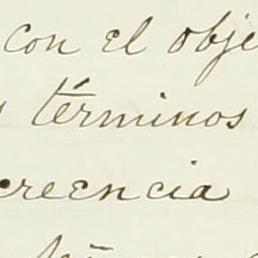 con el obje
términos
creencia